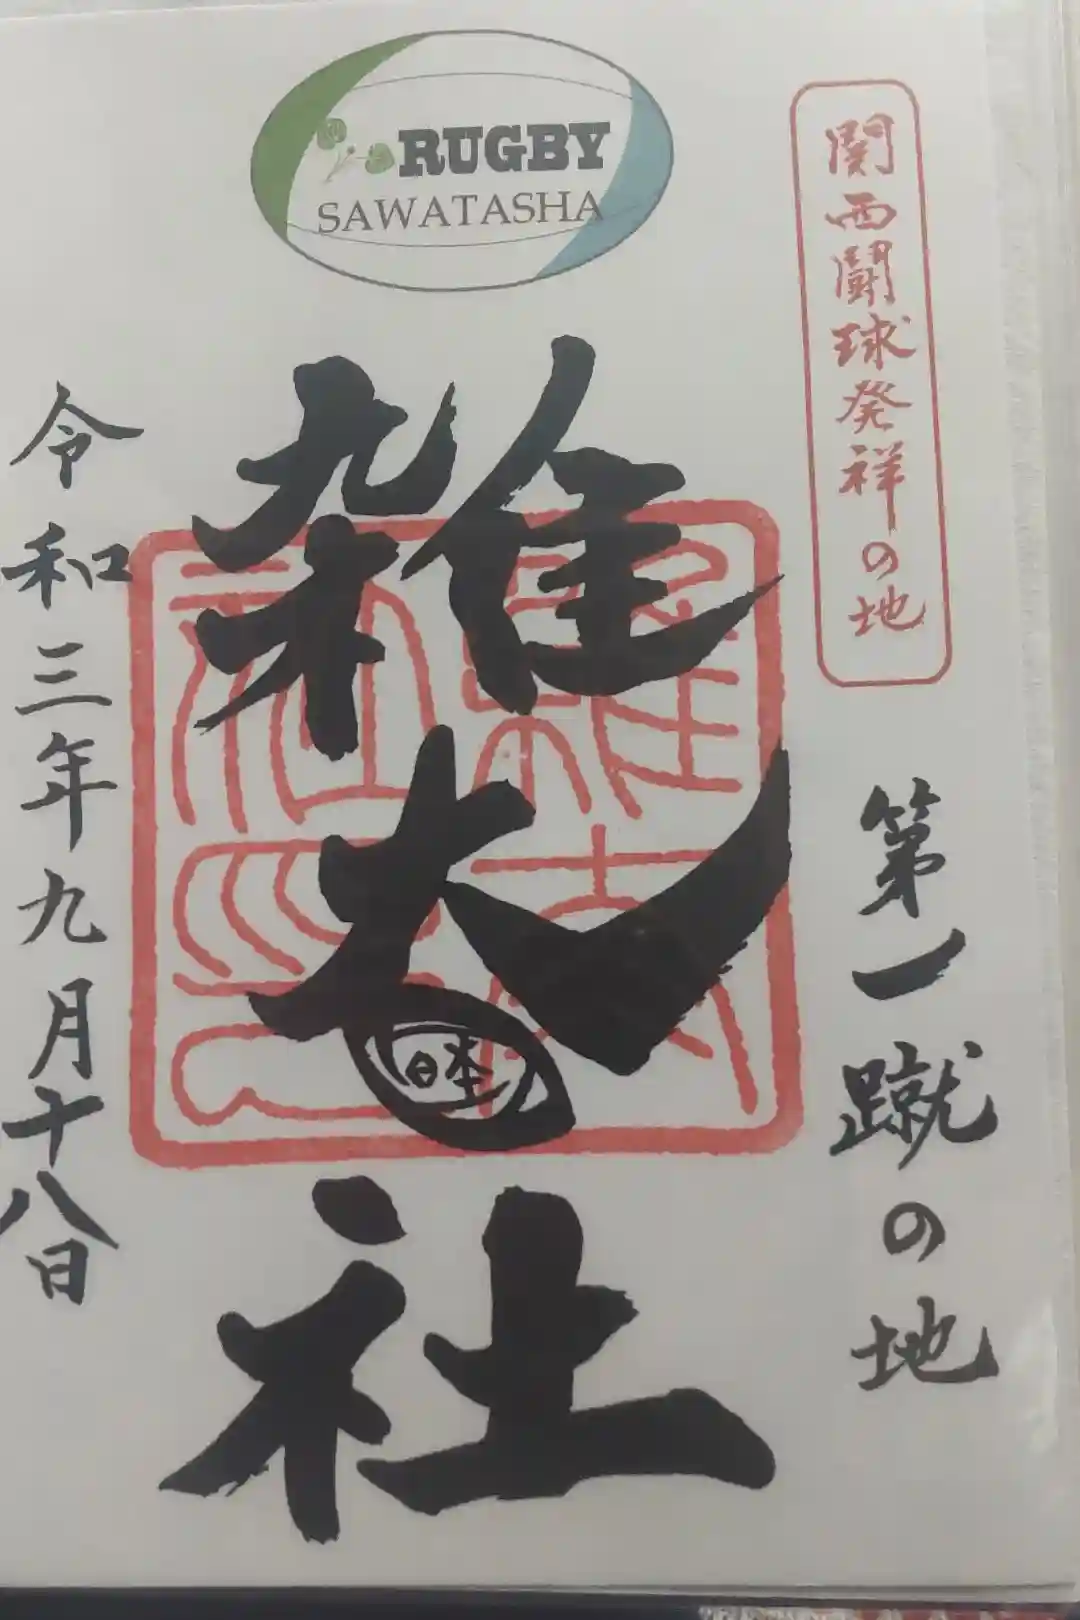 RUGBY
SAWATASHA
関西闘球発祥の地
第一蹴の地
雑太社
日本
令和三年九月十八日